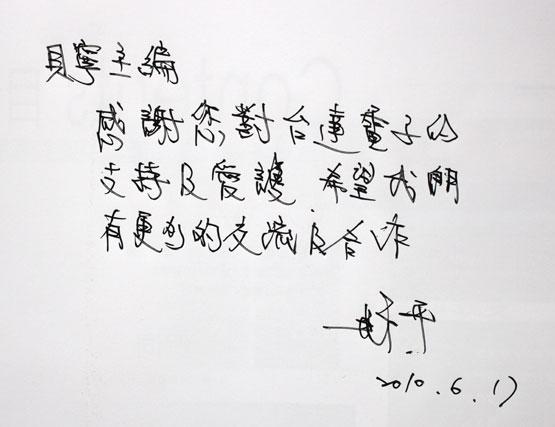 貝寧主編
感謝您對台達電子的
支持及愛護 希望我們
有更多的交流及合作
平
2010.6.17